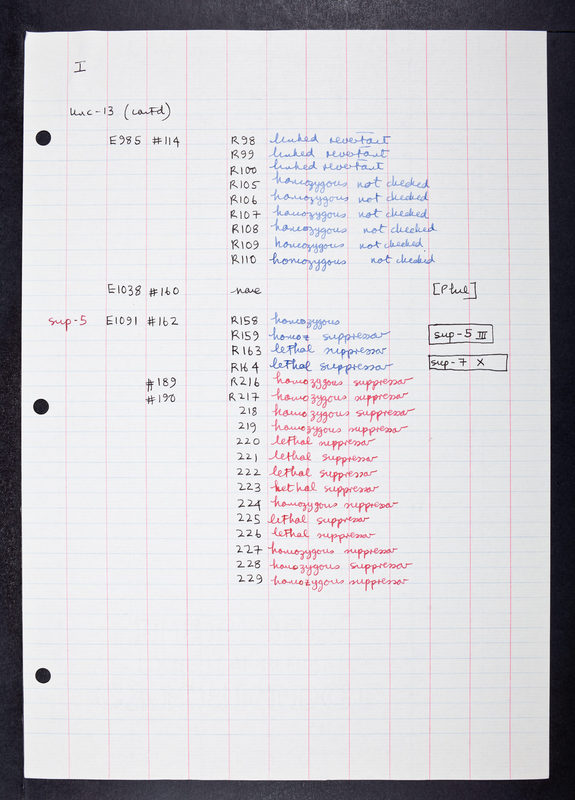 I
unc-13 (cont'd)
E985 #114 R98 linked revertant
R99 linked revertant
R100 linked revertant
R105 homozygous not checked
R106 homozygous not checked
R107 homozygous not checked
R108 homozygous not checked
R109 homozygous not checked
R110 homozygous not checked
E1038 #160 none [Phil]
sup-5 E1091 #162 R158 homozygous
R159 homoz suppressor sup-5 III
R163 lethal suppressor
R164 lethal suppressor sup-7 X
#189 R216 homozygous suppressor
#190 R217 homozygous suppressor
218 homozygous suppressor
219 homozygous suppressor
220 lethal suppressor
221 lethal suppressor
222 lethal suppressor
223 lethal suppressor
224 homozygous suppressor
225 lethal suppressor
226 lethal suppressor
227 homozygous suppressor
228 homozygous suppressor
229 homozygous suppressor